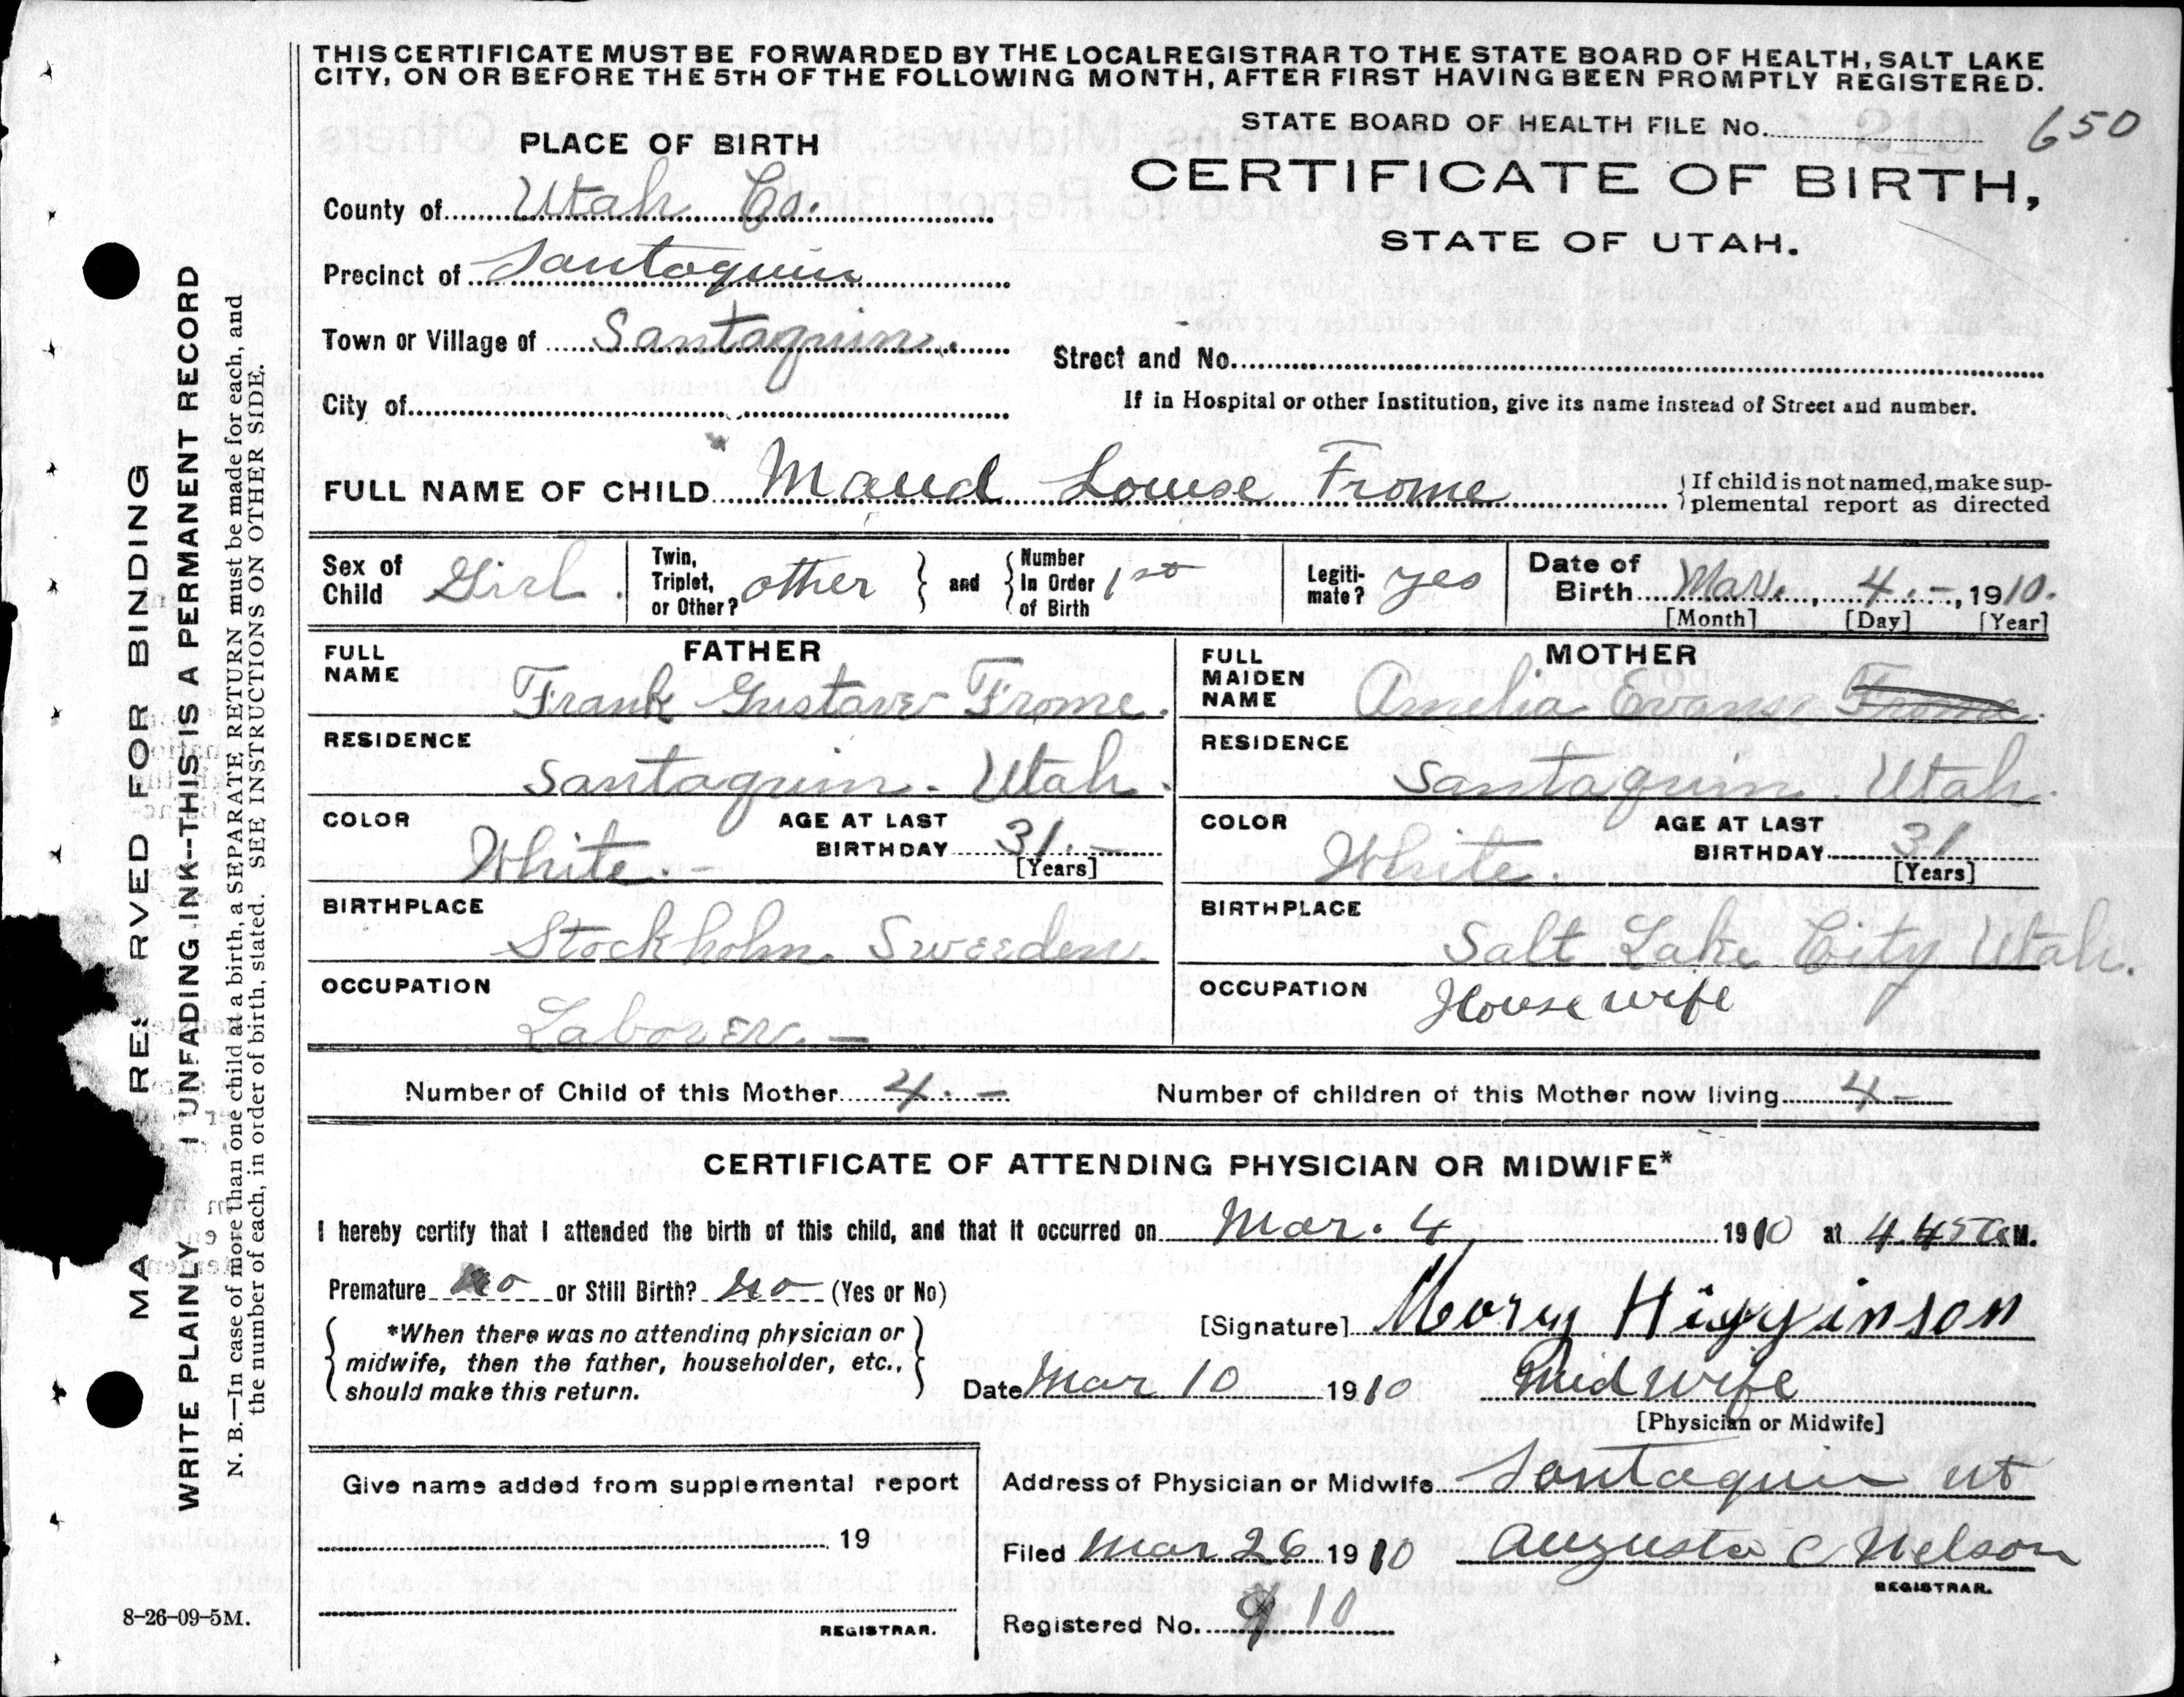 THIS CERTIFICATE MUST BE FORWARDED BY THE LOCAL REGISTRAR TO THE STATE BOARD OF HEALTH, SALT LAKE
CITY, ON OR BEFORE THE 5TH OF THE FOLLOWING MONTH, AFTER FIRST HAVING BEEN PROMPTLY REGISTERED.
STATE BOARD OF HEALTH FILE No. 650
PLACE OF BIRTH
CERTIFICATE OF BIRTH,
STATE OF UTAH.
County of Utah Co.
Precinct of Santaquin
Town or Village of Santaquin.
Street and No.
City of
If in Hospital or other Institution, give its name instead of Street and number.
FULL NAME OF CHILD Maud Louise Frome
If child is not named, make sup-
plemental report as directed
Sex of Child Girl.
Twin, Triplet, or Other? other
and Number In Order of Birth 1st
Legiti-mate? yes
Date of Birth Mar. 4.-, 1910.
[Month] [Day] [Year]
FATHER
FULL NAME Frank Gustave Frome.
RESIDENCE
Santaquin. Utah.
COLOR White.- AGE AT LAST BIRTHDAY 31.-
[Years]
BIRTHPLACE
Stockholm Sweeden.
OCCUPATION
Laborer.-
MOTHER
FULL MAIDEN NAME Amelia Evans Frome.
RESIDENCE
Santaquin. Utah.
COLOR White. AGE AT LAST BIRTHDAY 31
[Years]
BIRTHPLACE
Salt Lake City Utah.
OCCUPATION House wife
Number of Child of this Mother 4.- Number of children of this Mother now living 4-
CERTIFICATE OF ATTENDING PHYSICIAN OR MIDWIFE*
I hereby certify that I attended the birth of this child, and that it occurred on Mar. 4 1910 at 4.45 A M.
Premature no or Still Birth? no (Yes or No)
[Signature] Mary Higginson
*When there was no attending physician or
midwife, then the father, householder, etc.,
should make this return.
Date Mar 10 1910 Mid wife
[Physician or Midwife]
Give name added from supplemental report
19
REGISTRAR.
Address of Physician or Midwife Santaquin ut
Filed Mar 26 1910 Augusta C Nelson
REGISTRAR.
Registered No. 10
8-26-09-5M.
MA RES RVED FOR BINDING
WRITE PLAINLY I UNFADING INK--THIS IS A PERMANENT RECORD
N. B.—In case of more than one child at a birth, a SEPARATE RETURN must be made for each, and
the number of each, in order of birth, stated. SEE INSTRUCTIONS ON OTHER SIDE.